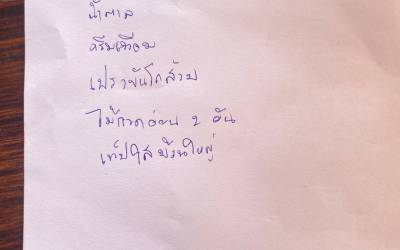 น้ำตาล
ครีมเทียม
แปรงขัดโถส้วม
ไม้กวาดอ่อน 2 อัน
เทปใสม้วนใหญ่